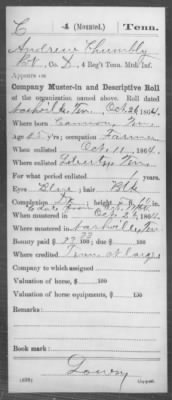 C 4 (Mounted.) Tenn.
Andrew Chumbly
Pvt, Co. D, 4 Reg't Tenn. Mtd. Inf.
Appears on
Company Muster-in and Descriptive Roll
of the organization named above. Roll dated
Nashville, Ten. Oct 26, 1864.
Where born Cannon, Tenn
Age 25 y'rs; occupation Farmer
When enlisted Oct. 11, 1864.
Where enlisted Liberty, Ten
For what period enlisted 1 years.
Eyes Blue; hair Blk
Complexion ; height 5 ft. in.
When mustered in Oct. 26, 1864.
Where mustered in Nashville, Ten
Bounty paid $ 33 33/100; due $ 100
Where credited Tenn at large
Company to which assigned
Valuation of horse, $ 100
Valuation of horse equipments, $ 100
Remarks:
Book mark:
Lowry
Copyist.